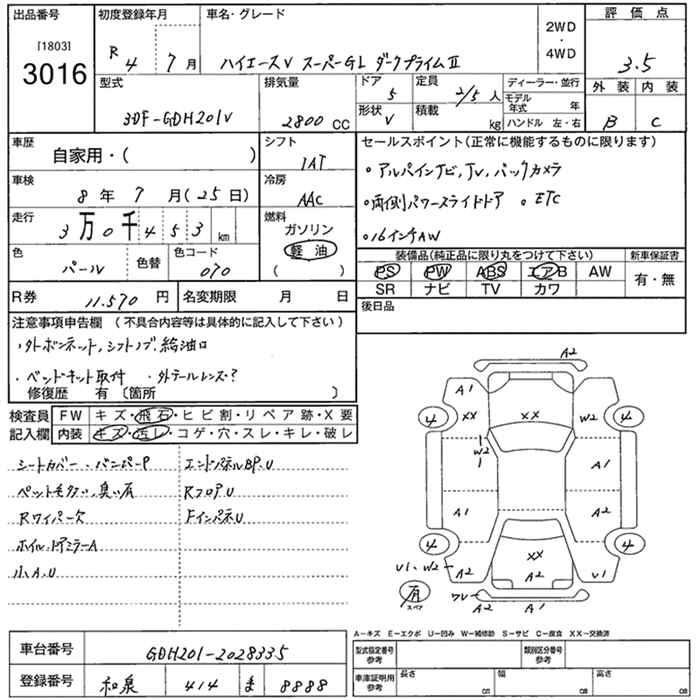 出品番号
[1803]
3016
初度登録年月
R 4 年 7 月
車名・グレード
ハイエースV スーパーGL ダークプライムⅡ
2WD
・
4WD
評価点
3.5
外装 内装
B C
型式
3DF-GDH201V
排気量
2800 CC
ドア
5
形状 V
定員
2/5 人
積載
kg
ディーラー・並行
モデル年式 年
ハンドル 左・右
車歴
自家用・( )
シフト
IAT
車検
8 年 7 月 (25 日)
冷房
AAC
走行
3 万 0 千 4 5 3 km
燃料
ガソリン
軽油
( )
色
パール
色替
色コード
070
R券 11.570 円
名変期限 月 日
セールスポイント(正常に機能するものに限ります)
・アルパインナビ, TV, バックカメラ
・両側パワースライドドア ・ETC
・16インチAW
装備品(純正品に限り丸をつけて下さい)
新車保証書
PS PW ABS エアB AW
SR ナビ TV カワ
有・無
後日品
注意事項申告欄 (不具合内容等は具体的に記入して下さい)
・外ボンネット, シフトノブ, 給油口
・ベッドキット取付 ・外テールレンズ?
修復歴 有 〔箇所 〕
検査員 FW キズ・飛石・ヒビ割・リペア跡・X要
記入欄 内装 キズ・汚レ・コゲ・穴・スレ・キレ・破レ
シートカバー・バンパーP
ペット毛多い, 臭い有
Rワイパー欠
ホイル, ドアミラーA
小A.U
エンドパネルBP.U
RフロアU
FインパネU
A2
A1
XX
XX
W2
4
4
W2
A1
A1
A2
4
4
XX
V1・W2
A2
A2
V1
有
スペア
ワレ
A2
A1
A-キズ E-エクボ U-凹み W-補修跡 S-サビ C-腐食 XX-交換済
車台番号 GDH201-2028335
登録番号 和泉 414 ま 8888
型式指定番号
参考
類別区分番号
参考
車庫証明用
参考
長さ cm
幅 cm
高さ cm